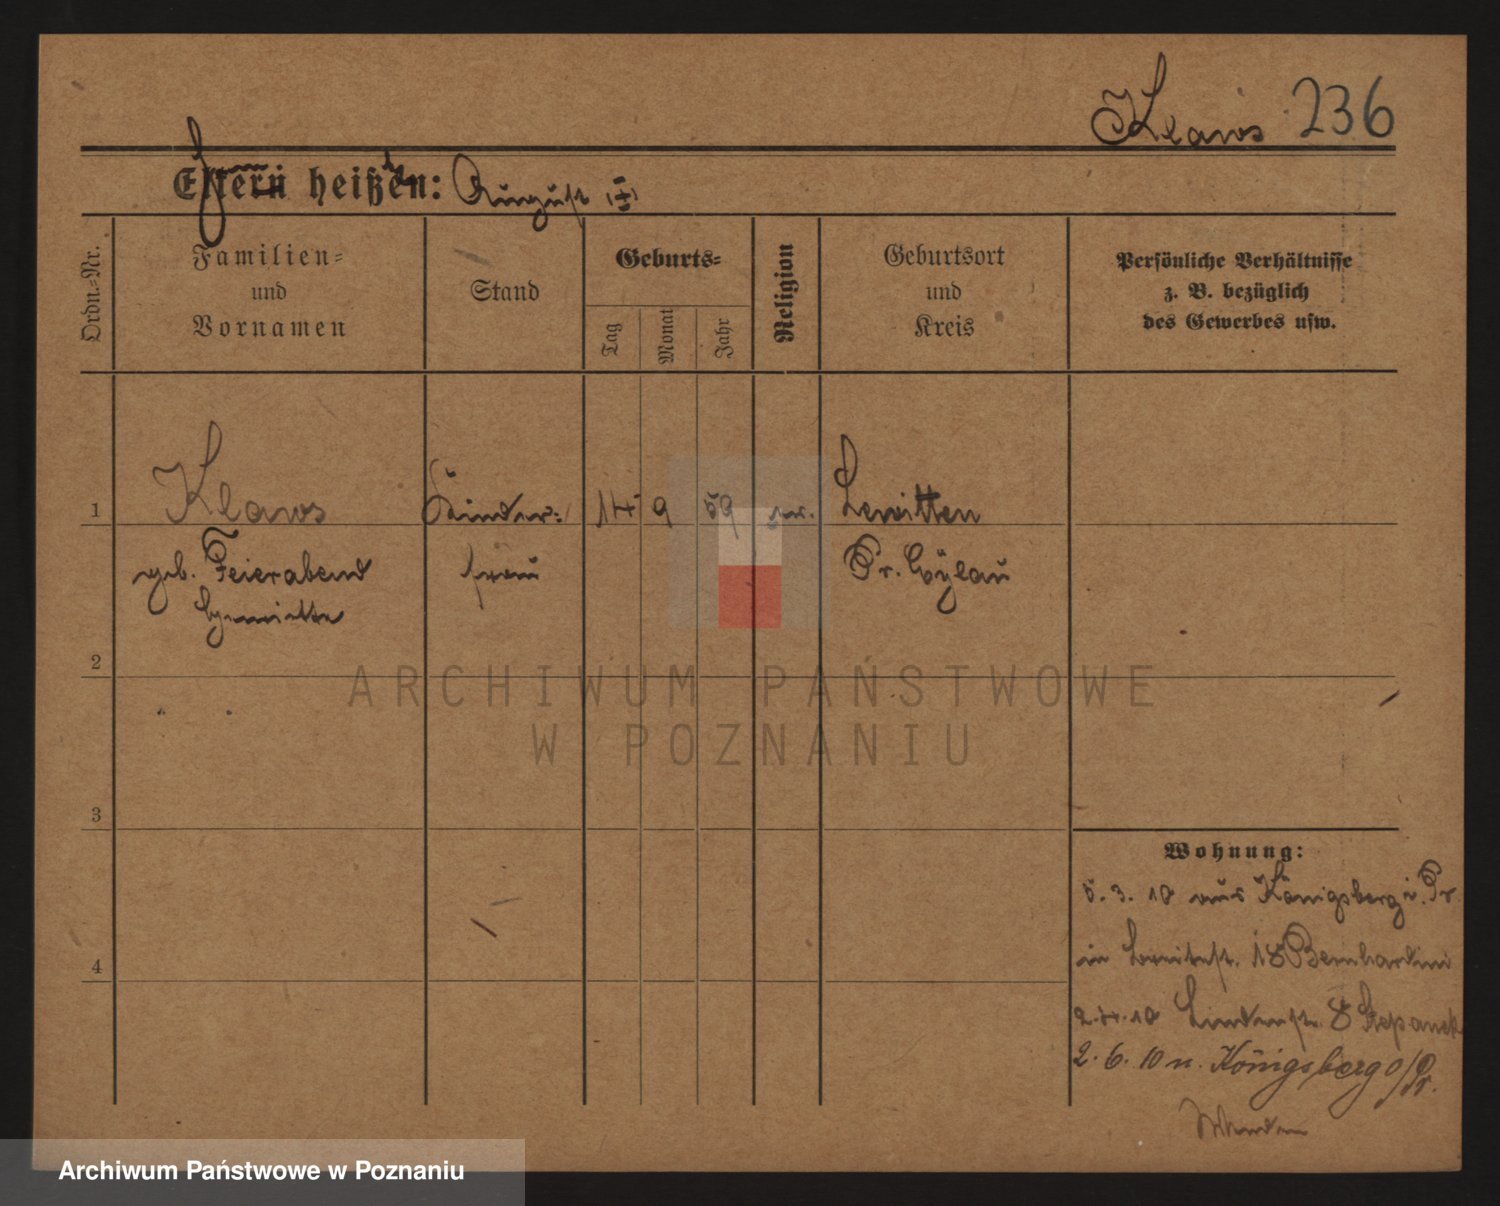 Klaws 236
Eltern heißen: August (†)
Ordn.-Nr.
Familien-
und
Vornamen
Stand
Geburts-
Tag
Monat
Jahr
Religion
Geburtsort
und
Kreis
Persönliche Verhältnisse
z. B. bezüglich
des Gewerbes usw.
1
Klaws
Kinder-
14 9 59
Lewitten
geb. Feierabend
frau
Pr. Eylau
Henriette
2
ARCHIWUM PAŃSTWOWE
W POZNANIU
3
Wohnung:
5.3.10 aus Königsberg i. Pr.
4
in Breitestr. 18 Bernhardini
2.4.10 Lindenstr. 8 Stepanek
2.6.10 n. Königsberg o/Pr.
Archiwum Państwowe w Poznaniu